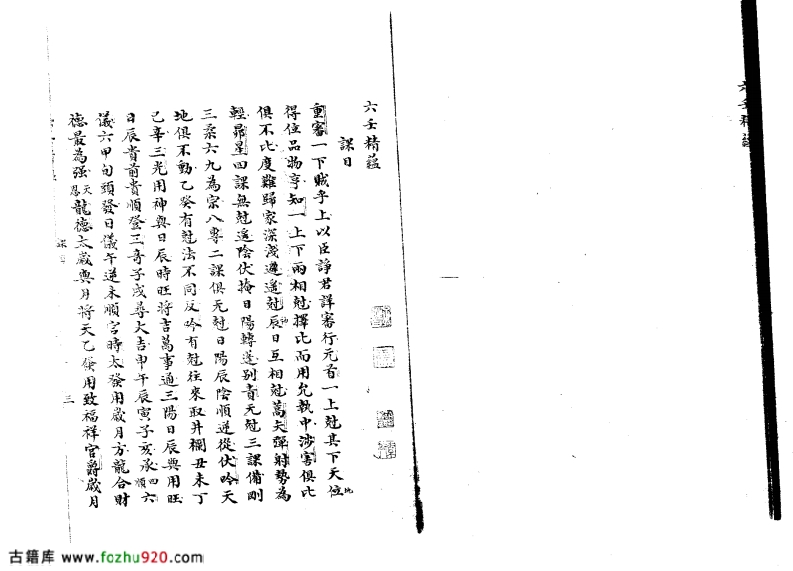 六壬精蘊
六壬精蘊
課目
重審一下賊乎上以臣諍君詳審行元首一上尅其下天位
得位品物亨知一上下兩相尅擇比而用允執中涉害俱比
俱不比度難歸家深淺遵遥尅辰日互相尅蒿矢彈射勢為
輕昴星四課無尅遥陰伏掩日陽轉蓬别責无尅三課備剛
三柔六九為宗八專二課俱无尅日陽辰陰順逆從伏吟天
地俱不動乙癸有尅法不同反吟有尅往來取井欄丑未丁
己辛三光用神與日辰時旺將吉萬事通三陽日辰與用旺
日辰貴前貴順登三奇子戌尋大吉申午辰寅子亥承四順六
儀六甲旬頭發日儀午逆未順宮時太發用歲月方龍合財
德最為强天恩龍德太歲與月將天乙發用致福祥官爵歲月
課目
三
古籍库 www.fozhu920.com